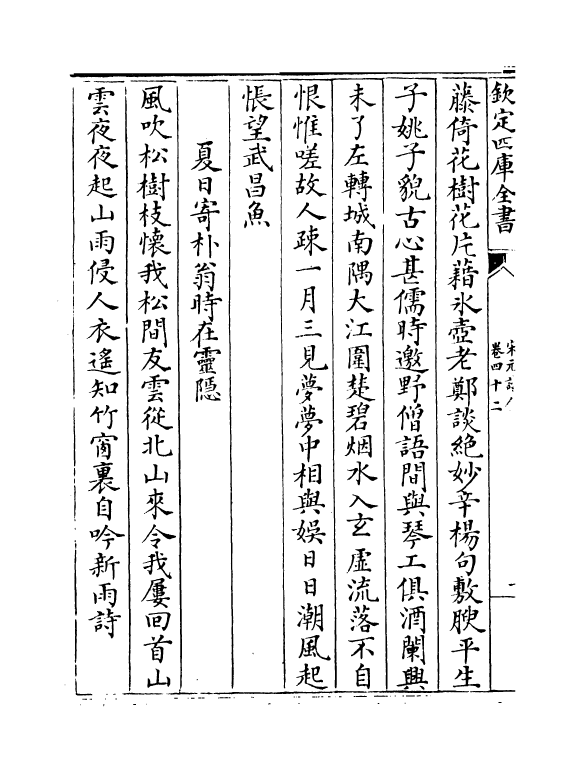 欽定四庫全書
卷四十二
二
藤倚花樹花片藉氷壺老鄭談絶妙辛楊句敷腴平生
子姚子貌古心甚儒時邀野僧語間與琴工俱酒闌興
未了左轉城南隅大江圍楚碧烟水入玄虛流落不自
恨惟嗟故人疎一月三見夢夢中相與娱日日潮風起
悵望武昌魚
夏日寄朴翁時在靈隱
風吹松樹枝懷我松間友雲從北山來令我屢回首山
雲夜夜起山雨侵人衣遙知竹窗裏自吟新雨詩